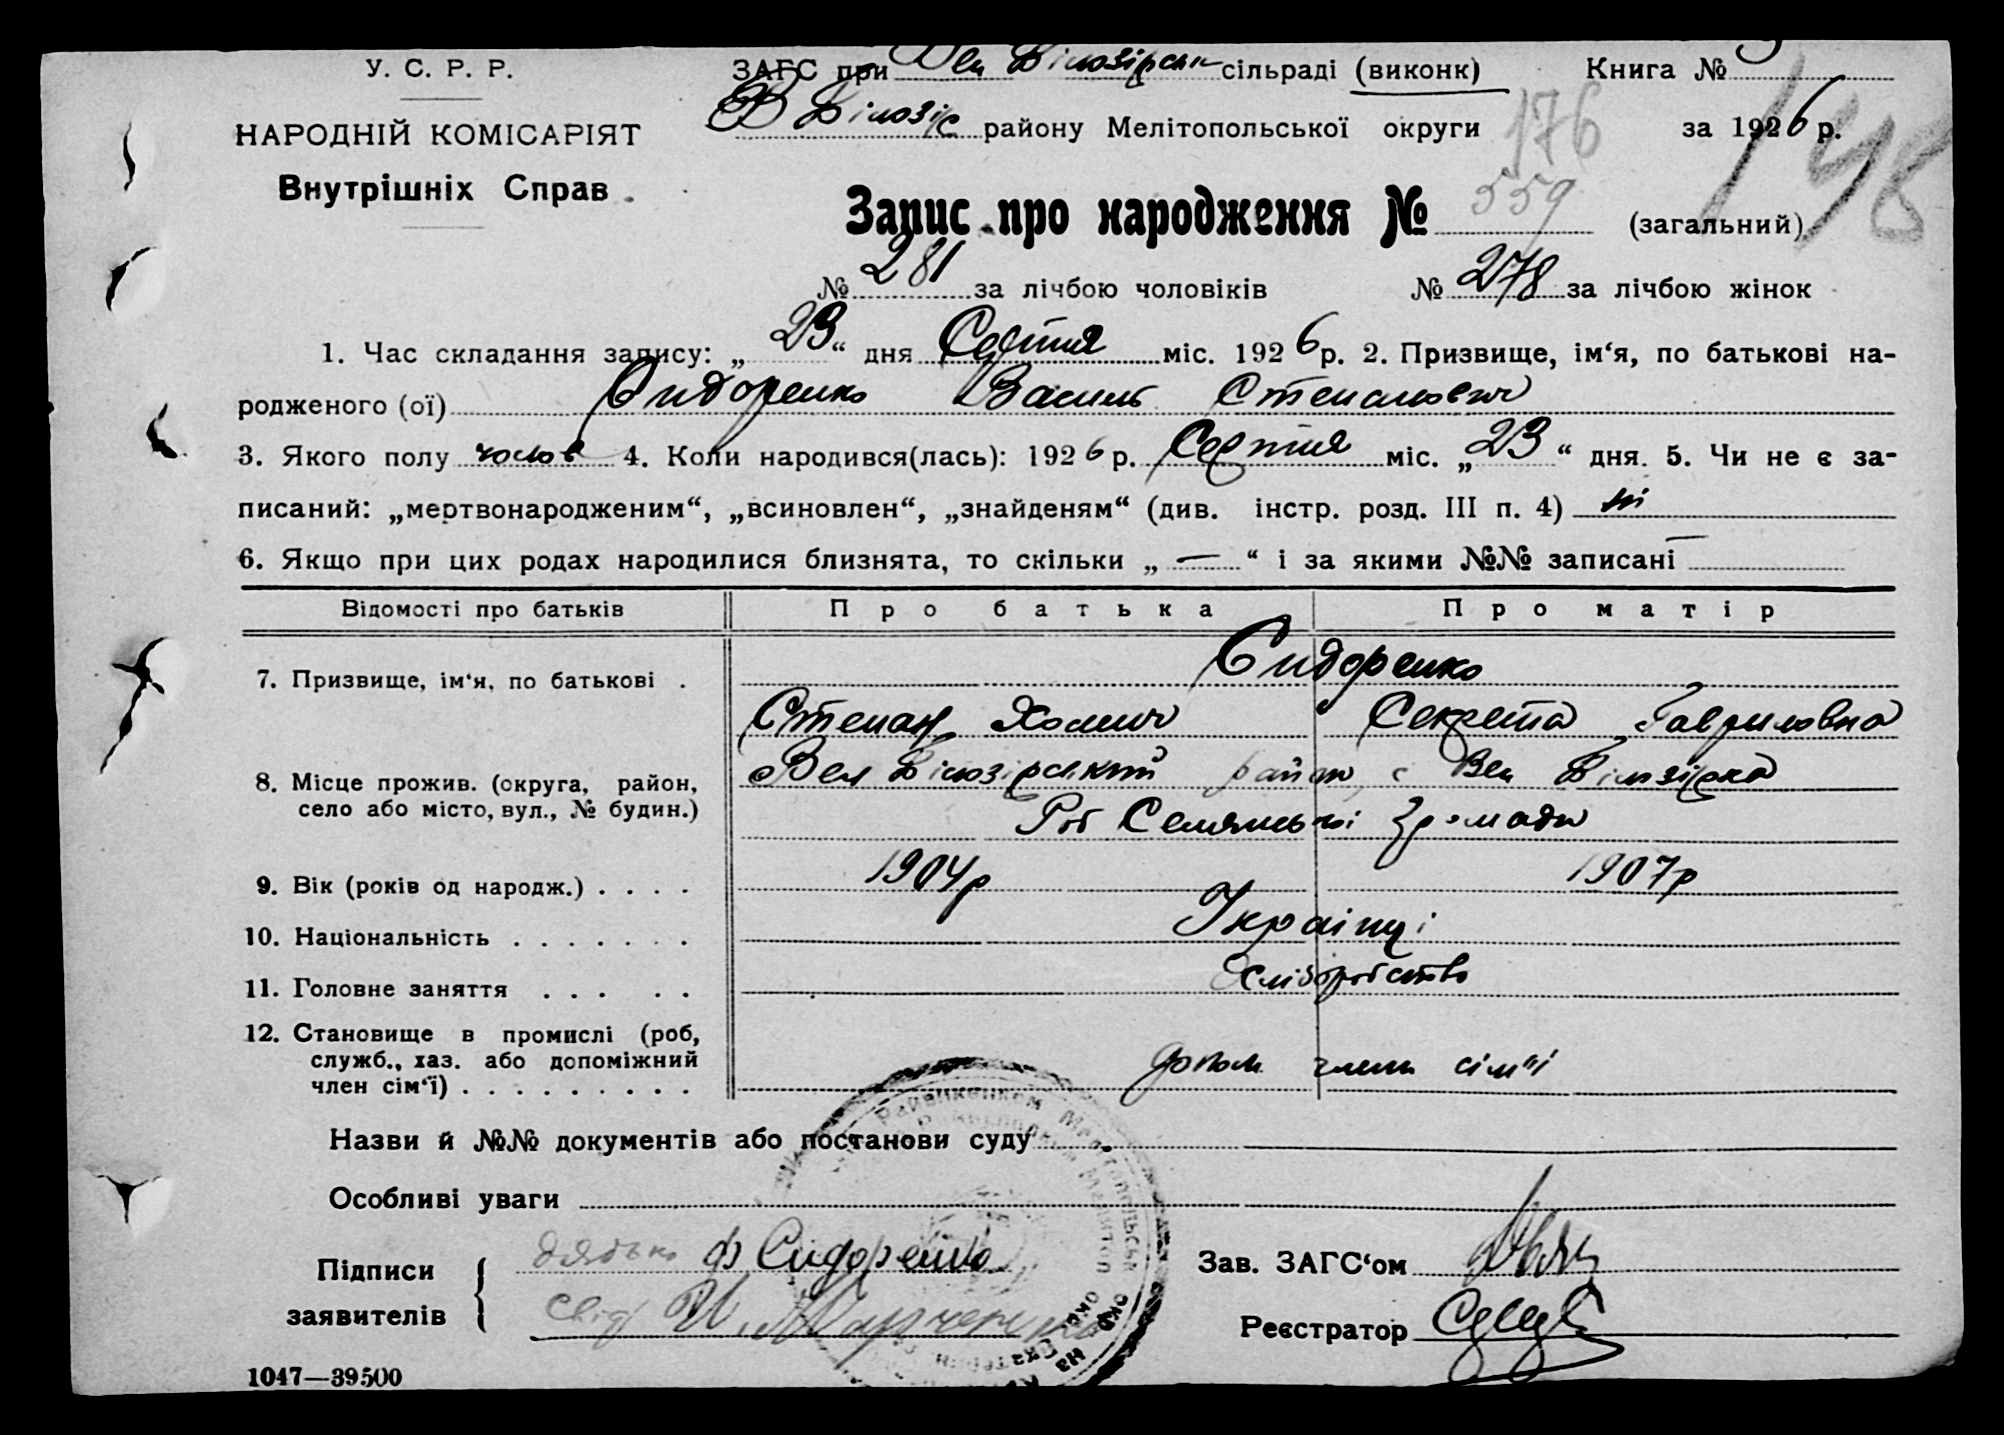 У. С. Р. Р.
НАРОДНІЙ КОМІСАРІЯТ
Внутрішніх Справ.
ЗАГС при Вел Білозірськ сільраді (виконк) Книга №
В Білозір району Мелітопольської округи за 1926 р.
176
148
Запис про народження № 559 (загальний)
№ 281 за лічбою чоловіків № 278 за лічбою жінок
1. Час складання запису: „23“ дня Серпня міс. 1926 р. 2. Призвище, ім‘я, по батькові на-
родженого (ої) Сидоренко Василь Степанович
3. Якого полу чолов 4. Коли народився(лась): 1926 р. Серпня міс. „23“ дня. 5. Чи не є за-
писаний: „мертвонародженим“, „всиновлен“, „знайденям“ (див. інстр. розд. III п. 4) ні
6. Якщо при цих родах народилися близнята, то скільки „—“ і за якими №№ записані —
Відомості про батьків Про батька Про матір
7. Призвище, ім‘я, по батькові . Сидоренко
Степан Хомич Секлета Гавриловна
8. Місце прожив. (округа, район, село або місто, вул., № будин.) Вел Білозірський район, с Вел Білозірка
Роб Селянської громади
9. Вік (років од народж.) . . . . 1904р 1907р
10. Національність . . . . . . . Українці
11. Головне заняття . . . . . Хліборобство
12. Становище в промислі (роб, служб., хаз. або допоміжний член сім‘ї) . . . . . . . . . допом член сім"ї
Назви й №№ документів або постанови суду
Особливі уваги
Підписи заявителів { дядько Ф Сидоренко
свід И. Марченко
Зав. ЗАГС‘ом
Реєстратор
1047—39500